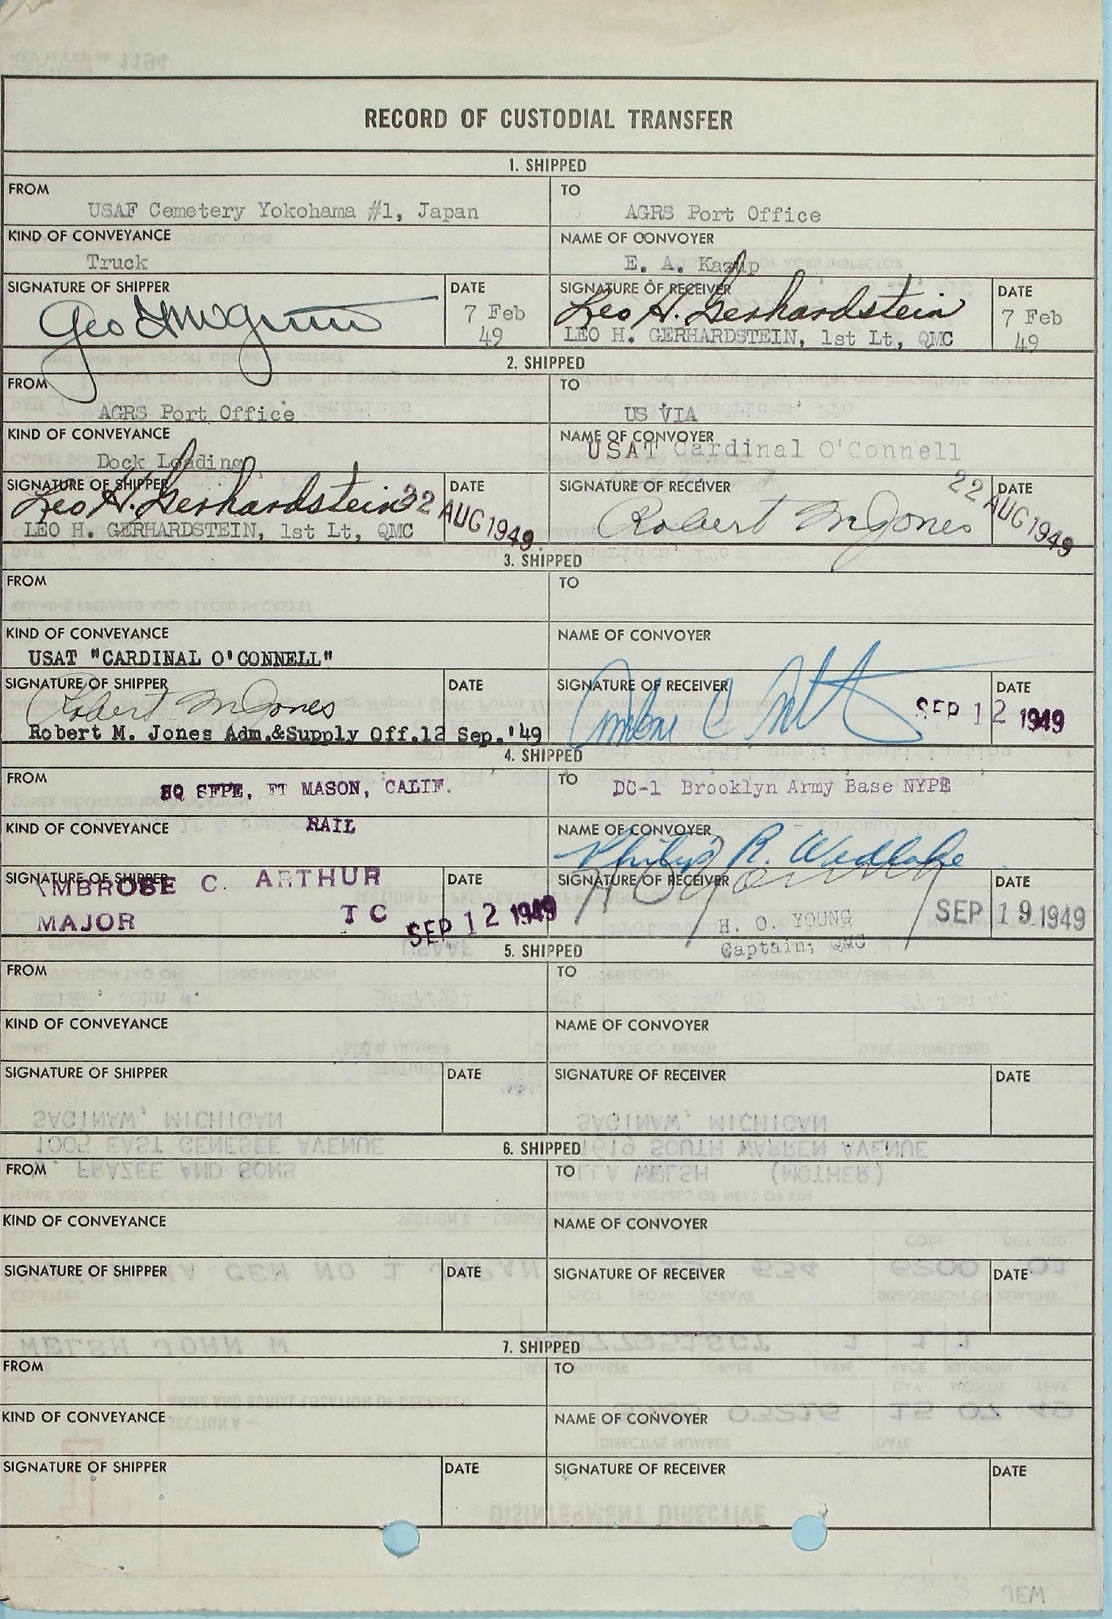 RECORD OF CUSTODIAL TRANSFER
1. SHIPPED
FROM
USAF Cemetery Yokohama #1, Japan
TO
AGRS Port Office
KIND OF CONVEYANCE
Truck
NAME OF CONVOYER
E. A. Kazup
SIGNATURE OF SHIPPER
DATE
7 Feb
49
SIGNATURE OF RECEIVER
Leo H. Gerhardstein
LEO H. GERHARDSTEIN, 1st Lt, QMC
DATE
7 Feb
49
2. SHIPPED
FROM
AGRS Port Office
TO
US VIA
KIND OF CONVEYANCE
Dock Loading
NAME OF CONVOYER
USAT Cardinal O'Connell
SIGNATURE OF SHIPPER
Leo H. Gerhardstein
LEO H. GERHARDSTEIN, 1st Lt, QMC
DATE
22 AUG 1949
SIGNATURE OF RECEIVER
Robert M Jones
DATE
22 AUG 1949
3. SHIPPED
FROM
TO
KIND OF CONVEYANCE
USAT "CARDINAL O'CONNELL"
NAME OF CONVOYER
SIGNATURE OF SHIPPER
Robert M Jones
Robert M. Jones Adm.&Supply Off.
DATE
12 Sep.'49
SIGNATURE OF RECEIVER
DATE
SEP 12 1949
4. SHIPPED
FROM
HQ SFPE, FT MASON, CALIF.
TO
DC-1 Brooklyn Army Base NYPE
KIND OF CONVEYANCE
RAIL
NAME OF CONVOYER
Philip R. Wedlake
SIGNATURE OF SHIPPER
AMBROSE C. ARTHUR
MAJOR TC
DATE
SEP 12 1949
SIGNATURE OF RECEIVER
H O Young
H. O. YOUNG
Captain, QMC
DATE
SEP 19 1949
5. SHIPPED
FROM
TO
KIND OF CONVEYANCE
NAME OF CONVOYER
SIGNATURE OF SHIPPER
DATE
SIGNATURE OF RECEIVER
DATE
6. SHIPPED
FROM
TO
KIND OF CONVEYANCE
NAME OF CONVOYER
SIGNATURE OF SHIPPER
DATE
SIGNATURE OF RECEIVER
DATE
7. SHIPPED
FROM
TO
KIND OF CONVEYANCE
NAME OF CONVOYER
SIGNATURE OF SHIPPER
DATE
SIGNATURE OF RECEIVER
DATE
JEM